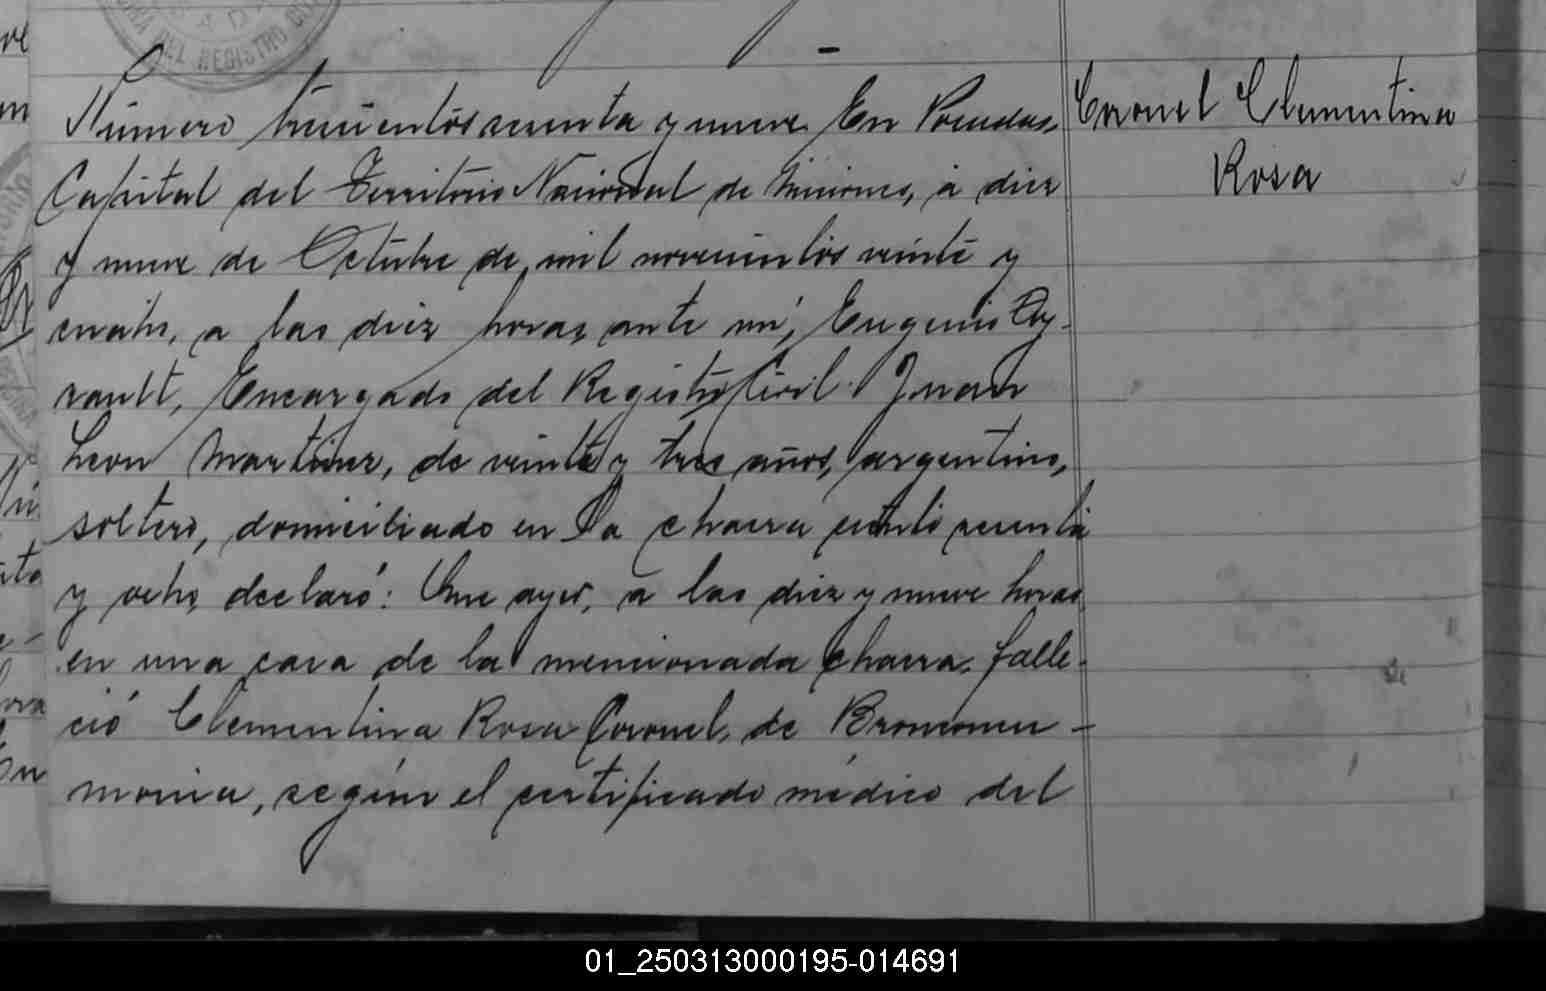 DEL REGISTRO
Número trescientos sesenta y nueve En Posadas,
Coronel Clementina
Rosa
Capital del Territorio Nacional de Misiones, á diez
y nueve de Octubre de mil novecientos veinte y
cuatro, a las diez horas, ante mí, Eugenio Ay-
rault, Encargado del Registro Civil. Juan
Leon Martinez, de veinte y tres años, argentino,
soltero, domiciliado en la chacra ciento sesenta
y ocho, declaró: Que ayer, a las diez y nueve horas
en una casa de la mencionada chacra, falle-
ció Clementina Rosa Coronel, de Bronconeu-
monia, según el certificado médico del
01_250313000195-014691